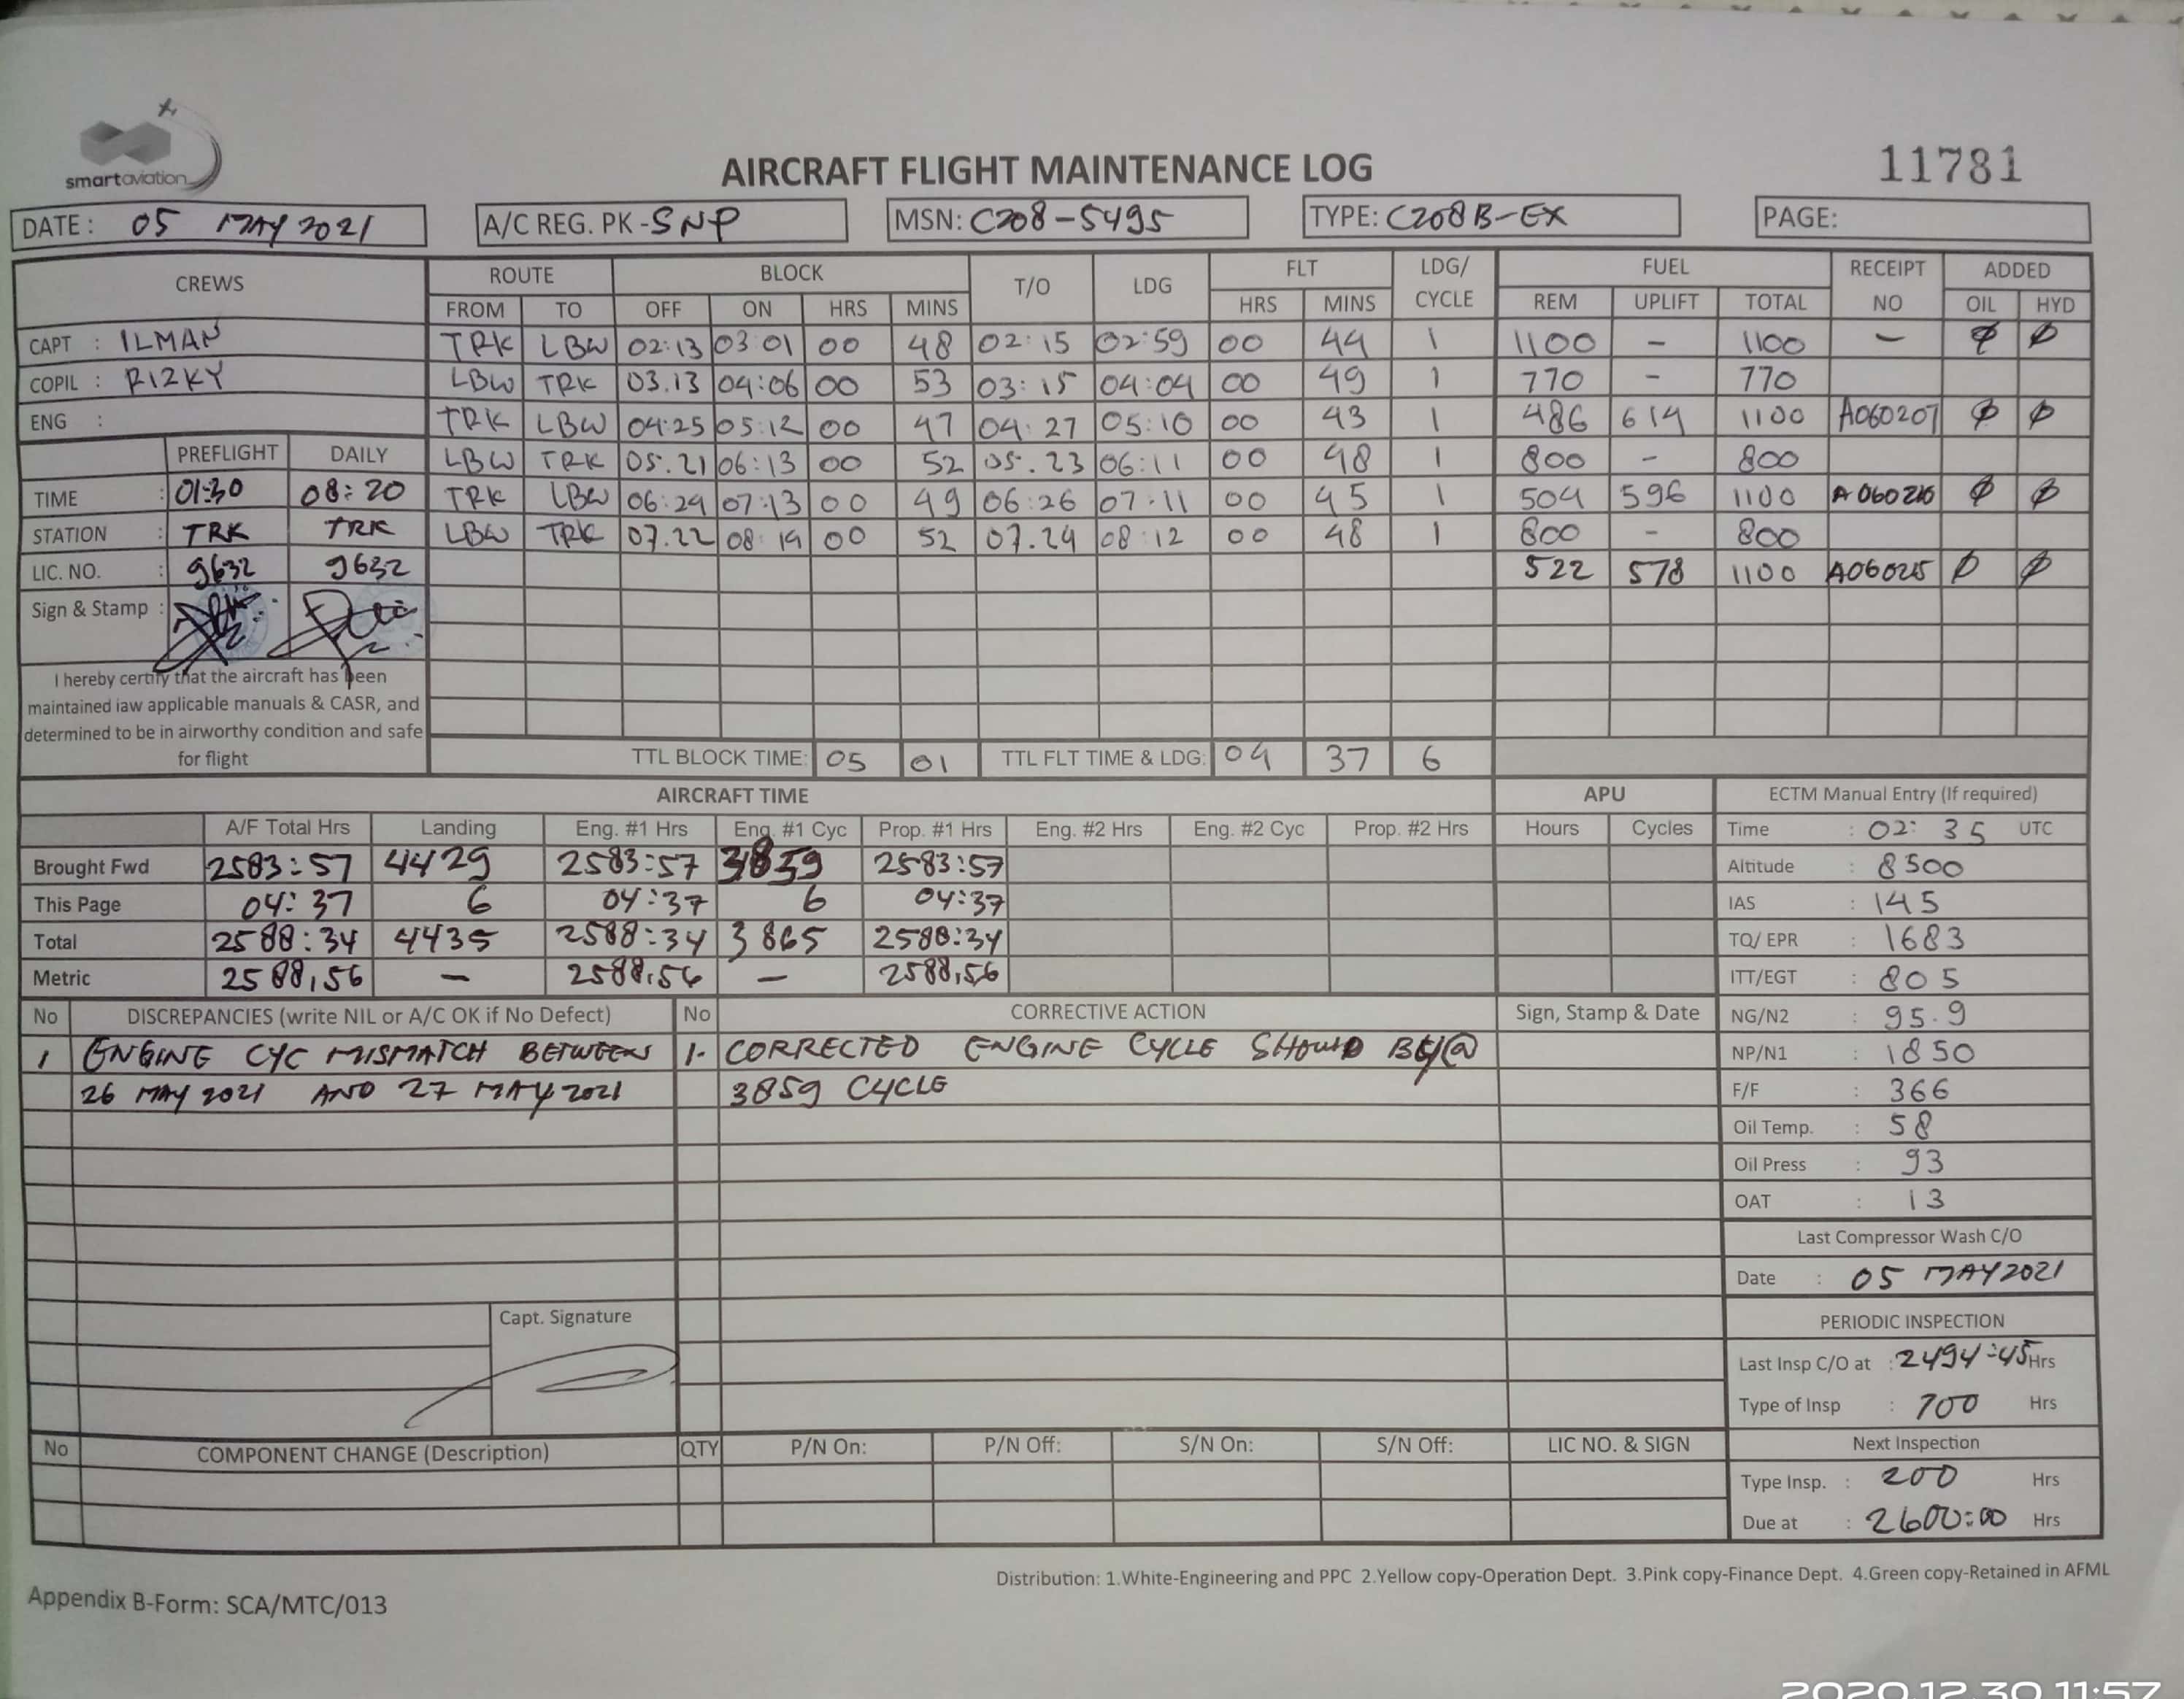 smartaviation
AIRCRAFT FLIGHT MAINTENANCE LOG
11781
DATE : 05 MAY 2021 A/C REG. PK - SNP MSN: C208-5495 TYPE: C208B-EX PAGE:
CREWS ROUTE BLOCK T/O LDG FLT LDG/ CYCLE FUEL RECEIPT NO ADDED
FROM TO OFF ON HRS MINS HRS MINS REM UPLIFT TOTAL OIL HYD
CAPT : ILMAN TRK LBW 02:13 03:01 00 48 02:15 02:59 00 44 1 1100 - 1100 - Ø Ø
COPIL : RIZKY LBW TRK 03.13 04:06 00 53 03:15 04:04 00 49 1 770 - 770
ENG : TRK LBW 04:25 05:12 00 47 04:27 05:10 00 43 1 486 614 1100 A060207 Ø Ø
PREFLIGHT DAILY LBW TRK 05.21 06:13 00 52 05.23 06:11 00 48 1 800 - 800
TIME : 01:30 08:20 TRK LBW 06:24 07:13 00 49 06:26 07:11 00 45 1 504 596 1100 Ø Ø
STATION : TRK TRK LBW TRK 07.22 08:14 00 52 07.24 08:12 00 48 1 800 - 800
LIC. NO. : 9632 9632 522 578 1100 Ø Ø
Sign & Stamp :
I hereby certify that the aircraft has been
maintained iaw applicable manuals & CASR, and
determined to be in airworthy condition and safe
for flight
TTL BLOCK TIME: 05 01 TTL FLT TIME & LDG: 04 37 6
AIRCRAFT TIME APU ECTM Manual Entry (If required)
A/F Total Hrs Landing Eng. #1 Hrs Eng. #1 Cyc Prop. #1 Hrs Eng. #2 Hrs Eng. #2 Cyc Prop. #2 Hrs Hours Cycles Time : 02:35 UTC
Brought Fwd 2583:57 4429 2583:57 3859 2583:57 Altitude : 8500
This Page 04:37 6 04:37 6 04:37 IAS : 145
Total 2588:34 4435 2588:34 3865 2588:34 TQ/ EPR : 1683
Metric 2588,56 - 2588,56 - 2588,56 ITT/EGT : 805
No DISCREPANCIES (write NIL or A/C OK if No Defect) No CORRECTIVE ACTION Sign, Stamp & Date NG/N2 : 95.9
1 ENGINE CYC MISMATCH BETWEEN 1. CORRECTED ENGINE CYCLE SHOULD BE @ NP/N1 : 1850
26 MAY 2021 AND 27 MAY 2021 3859 CYCLE F/F : 366
Oil Temp. : 58
Oil Press : 93
OAT : 13
Last Compressor Wash C/O
Date : 05 MAY 2021
Capt. Signature
PERIODIC INSPECTION
Last Insp C/O at : 2494:45 Hrs
Type of Insp : 700 Hrs
No COMPONENT CHANGE (Description) QTY P/N On: P/N Off: S/N On: S/N Off: LIC NO. & SIGN Next Inspection
Type Insp. : 200 Hrs
Due at : 2600:00 Hrs
Distribution: 1.White-Engineering and PPC 2.Yellow copy-Operation Dept. 3.Pink copy-Finance Dept. 4.Green copy-Retained in AFML
Appendix B-Form: SCA/MTC/013
2020.12.30 11:57